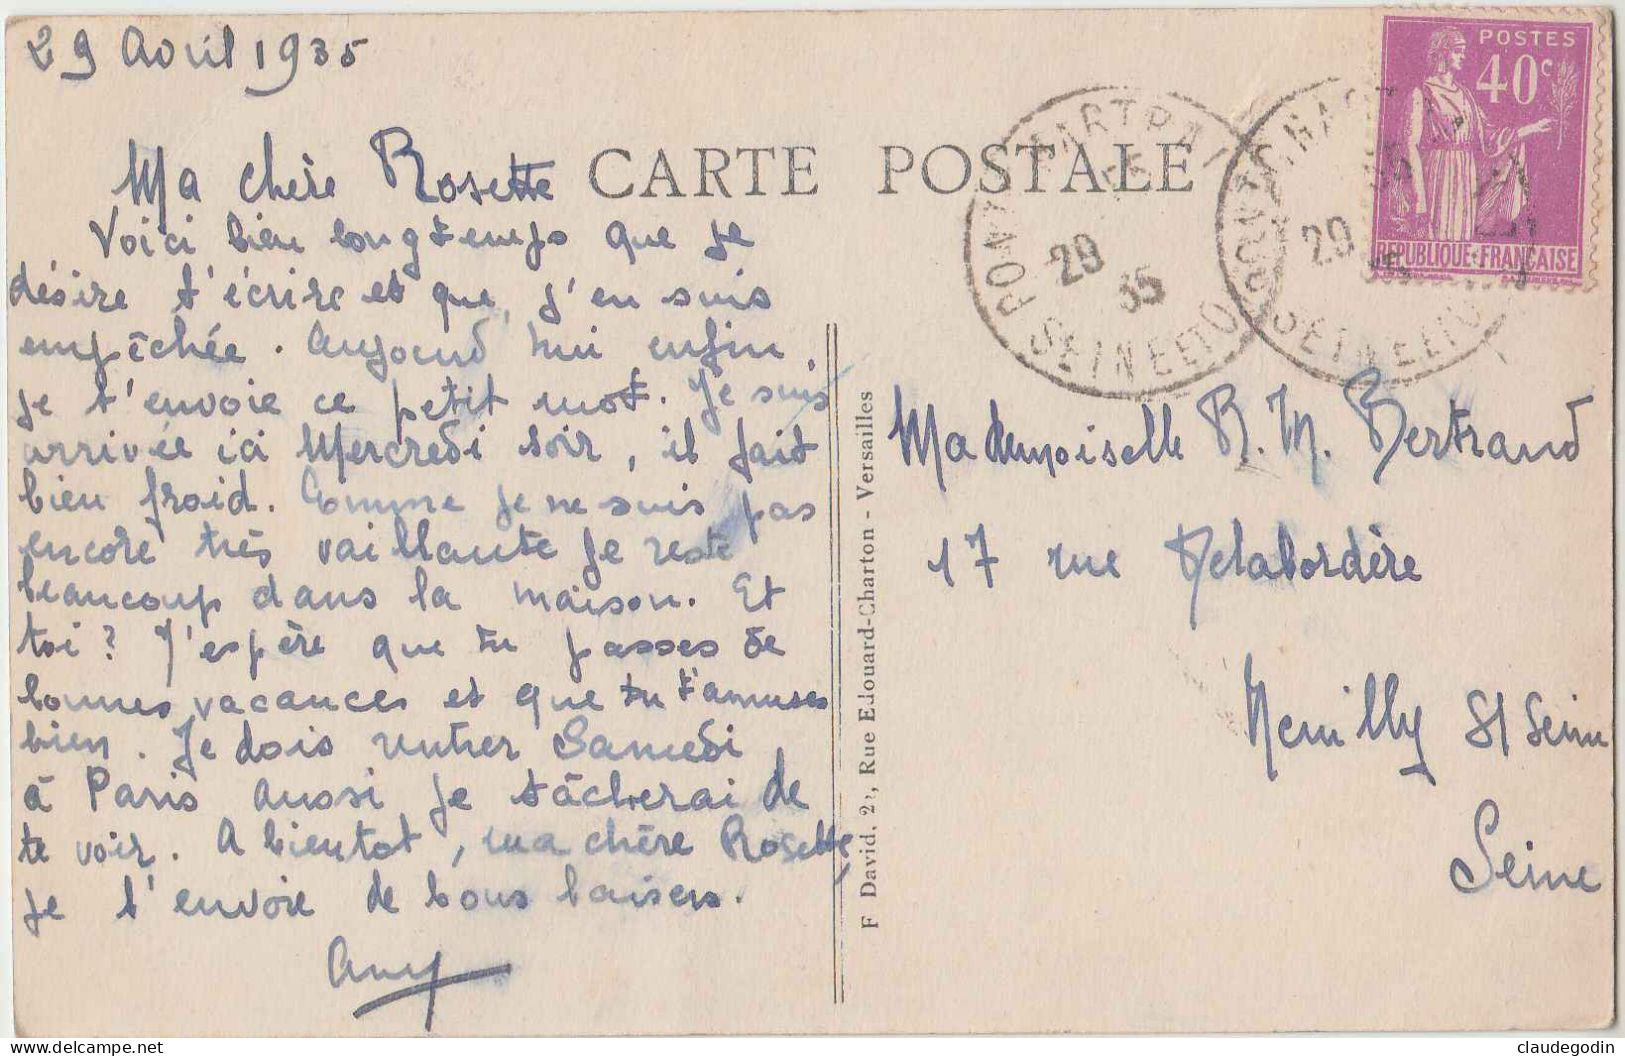 29 Avril 1935
Ma chère Rosette
Voici bien longtemps que je
désire t'écrire et que j'en suis
empêchée. Aujourd'hui enfin,
je t'envoie ce petit mot. Je suis
arrivée ici Mercredi soir, il fait
bien froid. Comme je ne suis pas
encore très vaillante je reste
beaucoup dans la maison. Et
toi ? J'espère que tu passes de
bonnes vacances et que tu t'amuses
bien. Je dois rentrer Samedi
à Paris aussi je tâcherai de
te voir. A bientot, ma chère Rosette,
je t'envoie de bons baisers.
Any
CARTE POSTALE
F David, Rue Edouard-Charton - Versailles
PONTCHARTRAIN
29
35
SEINE ET O
PONTCHARTRAIN
29
SEINE ET O
POSTES
40c
REPUBLIQUE-FRANÇAISE
Mademoiselle R. M. Bertrand
17 rue Delabordère
Neuilly S/ Seine
Seine
Delcampe.net
claudegodin